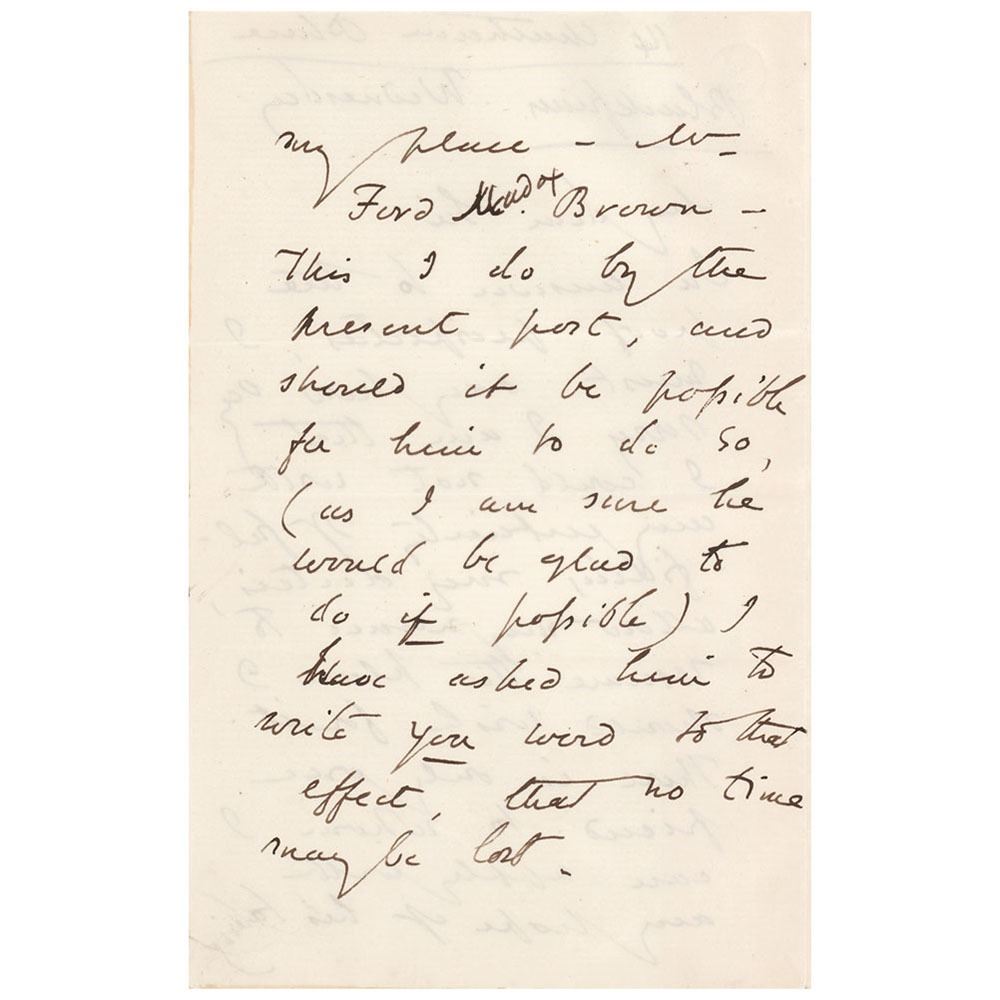 my place – Mr
Ford Madox Brown –
This I do by the
present post, and
should it be possible
for him to do so,
(as I am sure he
would be glad to
do if possible) I
have asked him to
write you word to that
effect, that no time
may be lost.